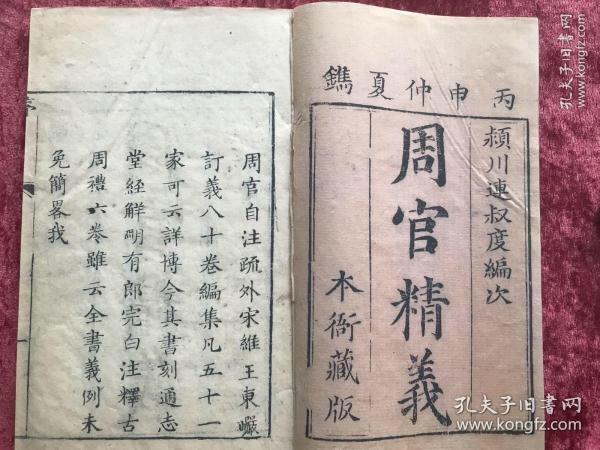 丙申仲夏鐫
潁川連叔度編次
周官精義
本衙藏版
周官自注疏外宋維王東巖
訂義八十卷編集凡五十一
家可云詳博今其書刻通志
堂經解明有郎完白注釋古
周禮六卷雖云全書義例未
免簡畧我
孔夫子旧书网
book.kongfz.com
孔夫子旧书网
book.kongfz.com